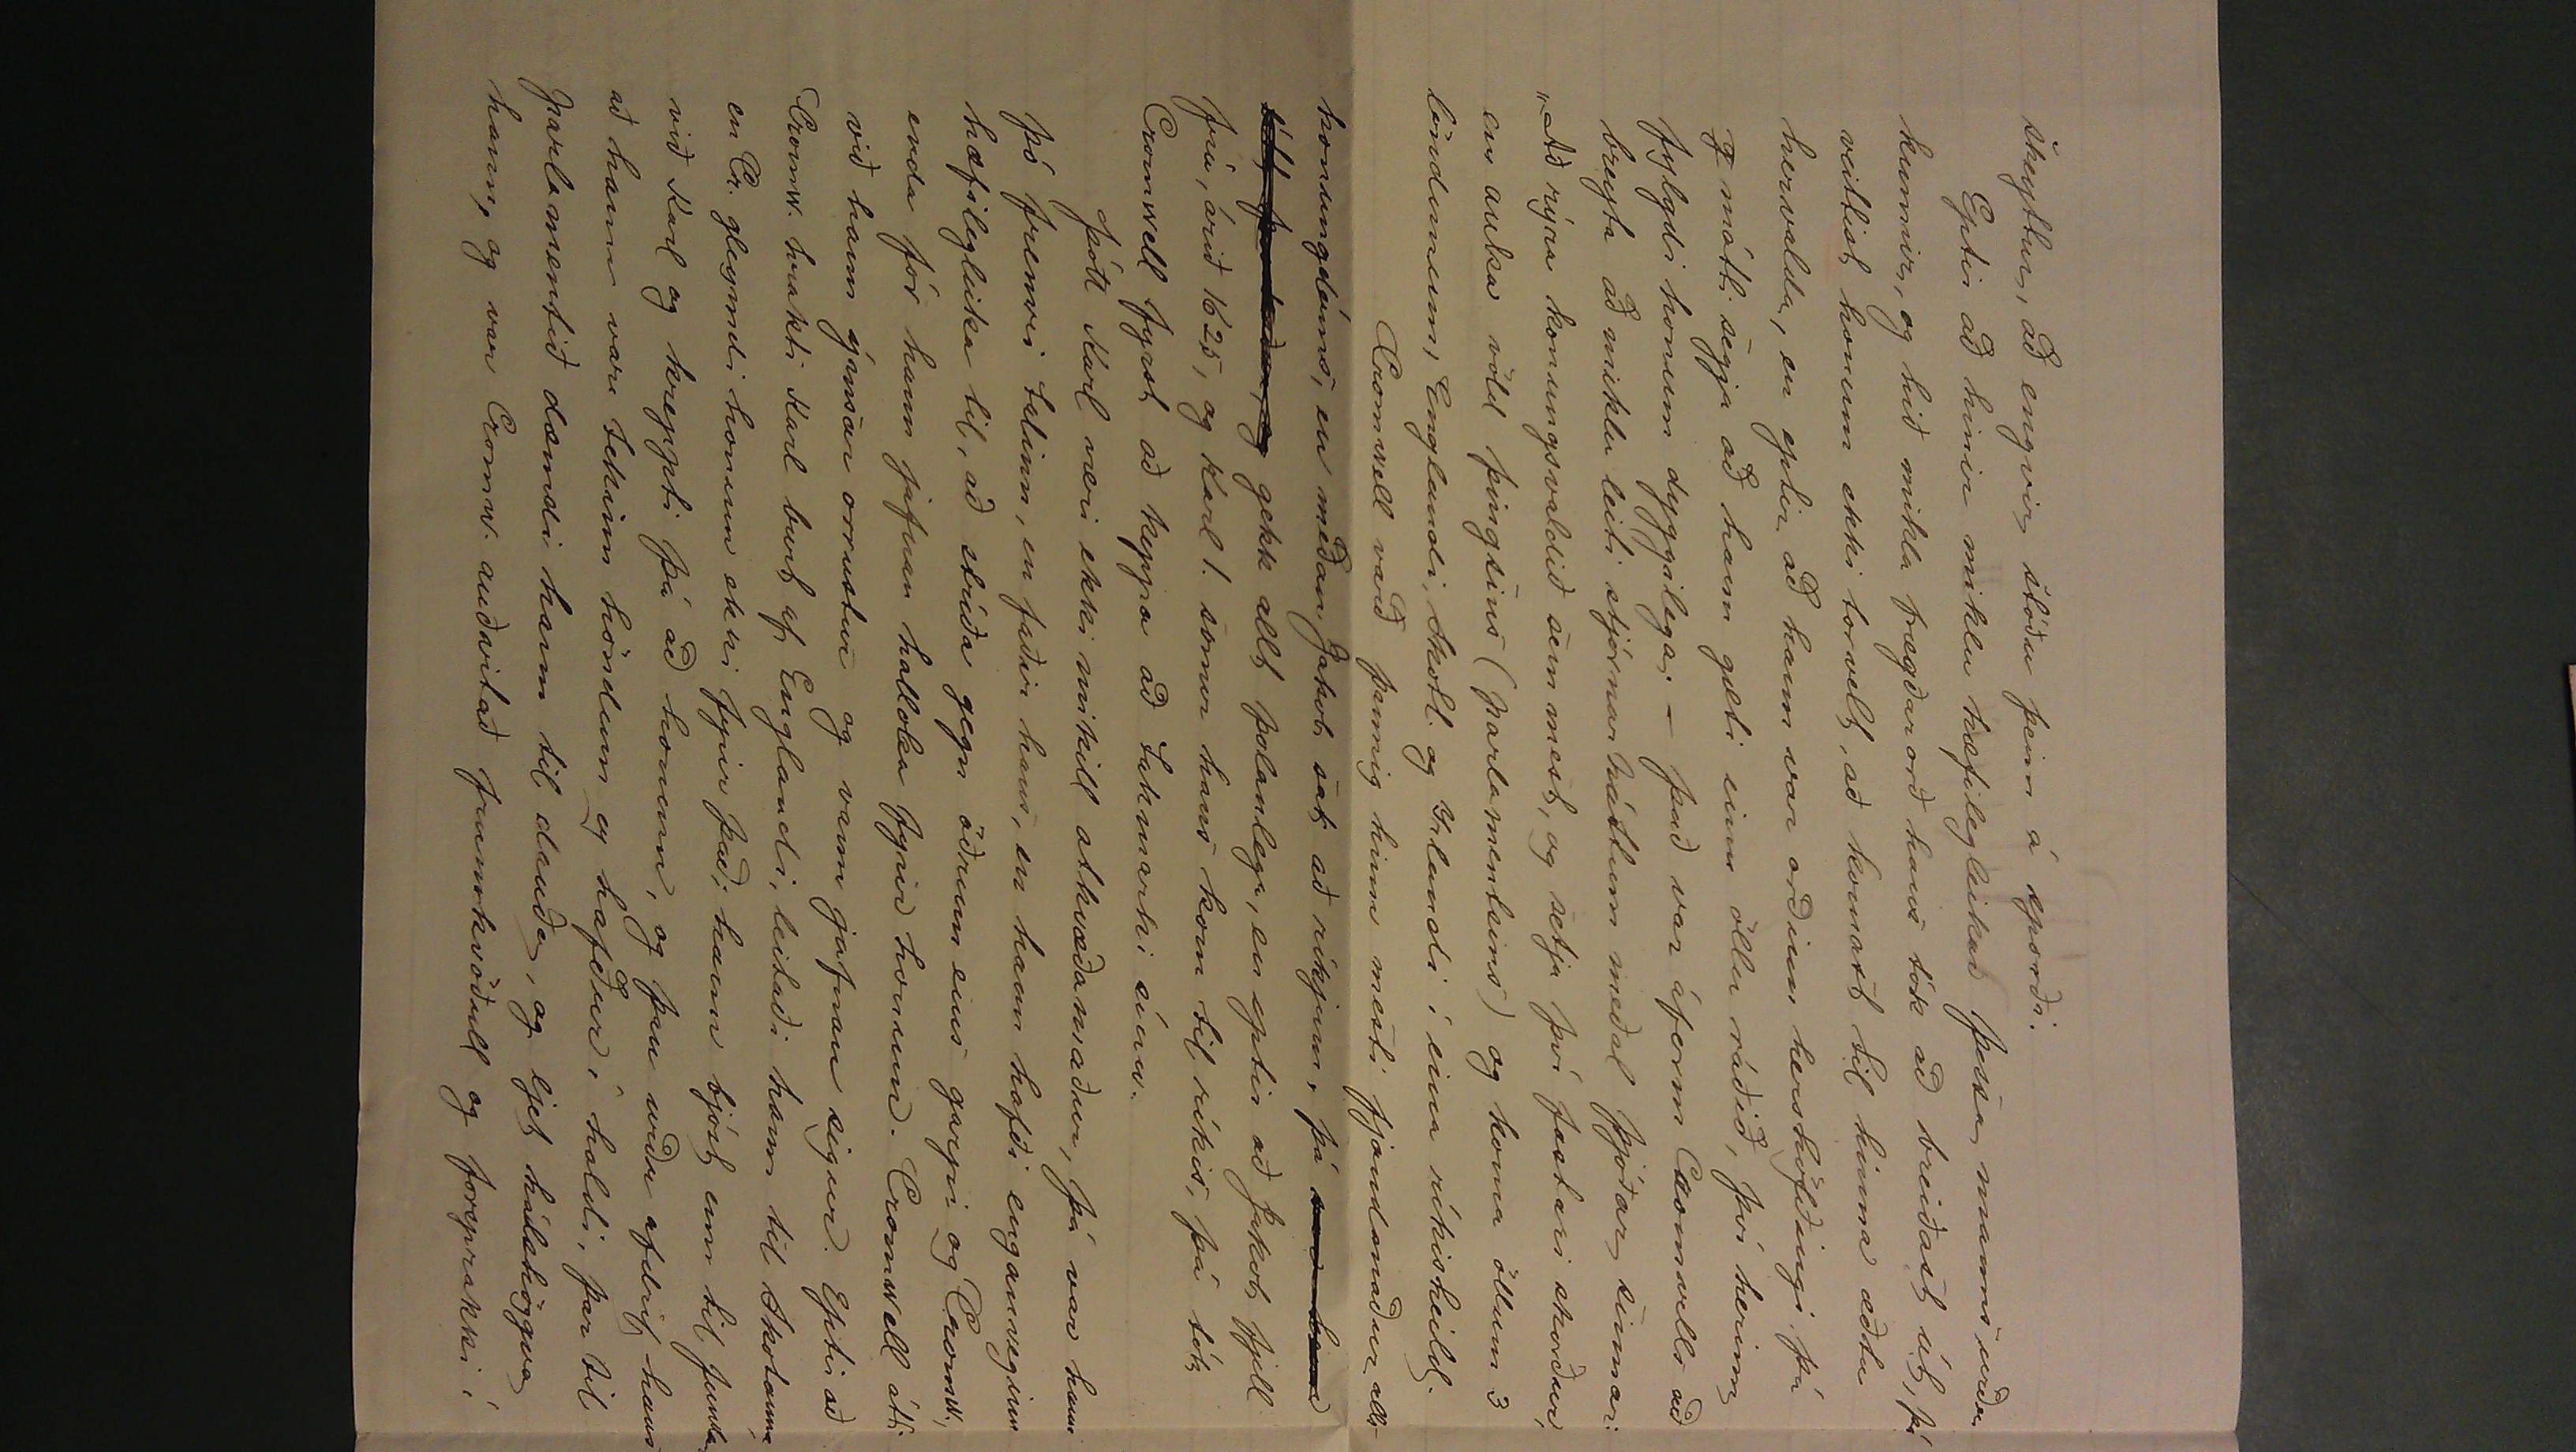 skeyttur, að engvir stóðu þeim á sporði.
Eptir að hinir miklu hæfileglikar þessa manns urðu
kunnir, og hið mikla frægðarorð hans tók að breiðast út, þá
veittist honum ekki torvelt, að komast til hinna æðstu
hervalda, en eptir að hann var orðinn hershöfðingi þá
mátti segja að hann gæti einn öllu ráðið, því herinn
fylgdi honum dyggilega; – það var áform Cromvells að
breyta að miklu leiti stjórnarháttum meðal þjóðar sinnar:
"Að rýra konungsvaldið sem mest, og setja því fastari skorður,
en auka völd þingsins (parlamentsins) og koma öllum 3
löndunum, Englandi, Skotl. og Yrlandi í eina ríkisheild.
Cromvell varð þannig hinn mesti fjandmaður alls
konungdóms, en meðan Jakob sat að ríkjum, þá
gekk allt þolanlega, en eptir að Jakob fjell
frá, árið 1625, og Karl 1. sonur hans kom til ríkis, þá tók
Cromwell fyrst að keppa að takmarki sínu.
Þótt Karl væri ekki mikill atkvæðamaður, þá var hann
þó fremri talinn, en faðir hans, en hann hafði enganveginn
hæfilegleika til, að stríða gegn öðrum eins garpi og Cromw.,
enda fór hann jafnan halloka fyrir honum. Cromwell átti
við hann ýmsar orrustur og vann jafnan sigur. Eptir að
Cromw. hrakti Karl burt af Englandi, leitaði hann til Skotanna
en Cr. gleymdi honum ekki fyrir það; hann bjóst enn til funda
við Karl og kreppti þá að honum, og þau urðu afdrif hans
að hann var tekinn höndum og hafður í haldi, þar til
parlamentið dæmdi hann til dauða, og ljet hálshöggva
hann, og var Cromw. auðvitað frumkvöðull og forsprakki í